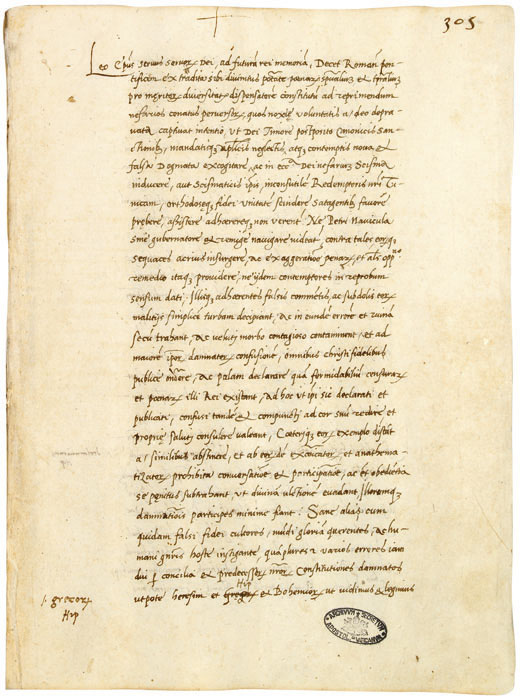 305
Leo Ep̃us servus servor̃ Dei, ad futurā rei memoriā, Decet Romanū pon-
tificem ex tradita sibi divinitus p̃otate poenar̃ spũalium et tp̃ralium
pro meritor̃ diversitate dispensatorē constitutū ad reprimendum
nefarios conatus perversor̃, quos noxiẽ voluntatis adeo depra-
vata captivat intentio, ut Dei timore postposito Canonicis San-
ctionib₃, mandatisq₃ ap̃licis neglectis, atq₃ contemptis nova et
falsa Dogmata excogitare, ac in ecc.ª Dei nefariũ Scisma
inducere, aut Scismaticis ip̃is, inconsutilē Redemptoris nr̃i Tu-
nicam, orthodoxeq₃ fidei unitatē scindere satagentib₃ favorē
prebere, assistere adhaerereq₃ non verent. Ne Petri Navicula
sine gubernatore et remige navigare videat, contra tales eorq₃
sequaces acrius insurgere, ac exaggeratione penar̃, et alio opp.ⁿᵒ
remedio itaq₃ providere, ne ijdem contemptores in reprobum
sensum dati, illisq₃ adhaerentes falsis commentis, ac subdolis eor̃
malitijs simplicē turbam decipiant, ac in eundē errorē et ruinā
secū trahant, ac veluti morbo contagioso contaminent, et ad
maiorē ipsor̃ damnator̃ confusionē, omnibus christi fidelibus
publicē ac palam declarare quā formidabiliū censurar̃
et poenar̃ illi Rei existant, Ad hoc ut ip̃i sic declarati et
publicati, confusi tandē et compuncti ad cor suū redire et
proprie saluti consulere valeant, Coeteriq₃ eor̃ exemplo discant
a similibus abstinere, et ab eor̃ de excōicator̃, et anathema-
tizator̃ prohibita conversatione et participatione, ac et obedientia
se penitus subtrahant ut divinā ultionē evadant illoremq₃
damnationis participes minime fiant: Sane alias cum
quidam falsi fidei cultores, mūdi gloriā querentes, ac hu-
mani gn̄ris hoste instigante, quāplures et varios errores iam
dū p̱ concilia et predecessor̃ nr̃or̃ Constitutiones damnatos
Hip
utpote heresim et Bohemor̃ ut vidimus et legimus
1. grecor̃
Hip
ARCHIVUM SECRETUM
APOSTOL. VATICANUM